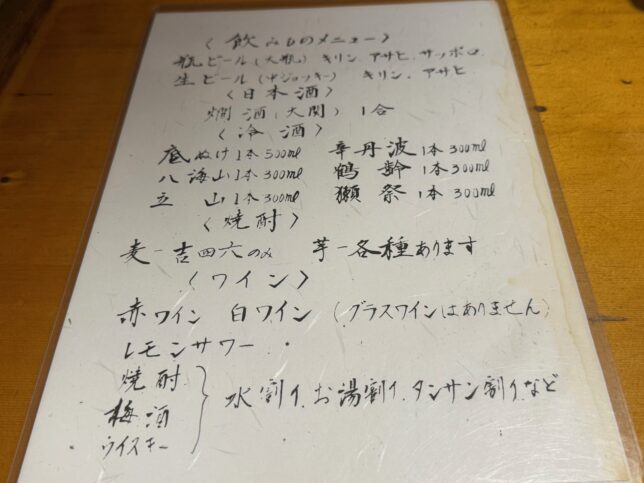 〈飲みものメニュー〉
瓶ビール(大瓶) キリン、アサヒ、サッポロ
生ビール(中ジョッキー) キリン、アサヒ
〈日本酒〉
燗酒(大関) 1合
〈冷酒〉
底ぬけ1本500ml 辛丹波1本300ml
八海山1本300ml 鶴齢1本300ml
立山1本300ml 獺祭1本300ml
〈焼酎〉
麦-吉四六のみ 芋-各種あります
〈ワイン〉
赤ワイン 白ワイン (グラスワインはありません)
レモンサワー・
焼酎
梅酒
ウイスキー
水割イ、お湯割イ、タンサン割イなど